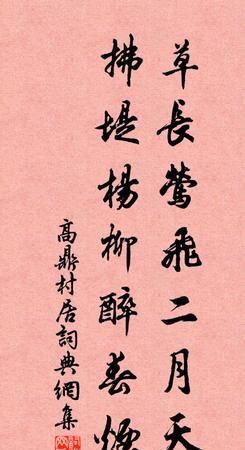 草長鶯飛二月天
拂堤楊柳醉春煙
高鼎村居詞典網集